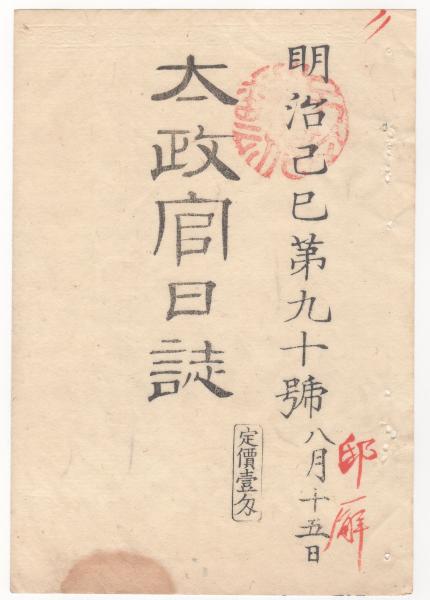 明治己巳第九十號八月十五日
太政官日誌
定價壹匁